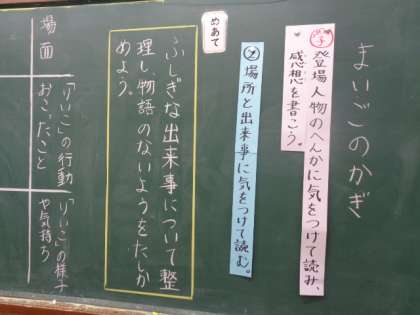 まいごのかぎ
学 登場人物のへんかに気をつけて読み、
感想を書こう。
② 場所と出来事に気をつけて読む。
めあて
ふしぎな出来事について整
理し、物語のないようをたしか
めよう。
場面
「りいこ」の行動
おこったこと
「りいこ」の様子
や気持ち